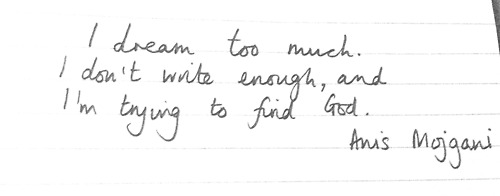 I dream too much.
I don't write enough, and
I'm trying to find God.
Anis Mojgani